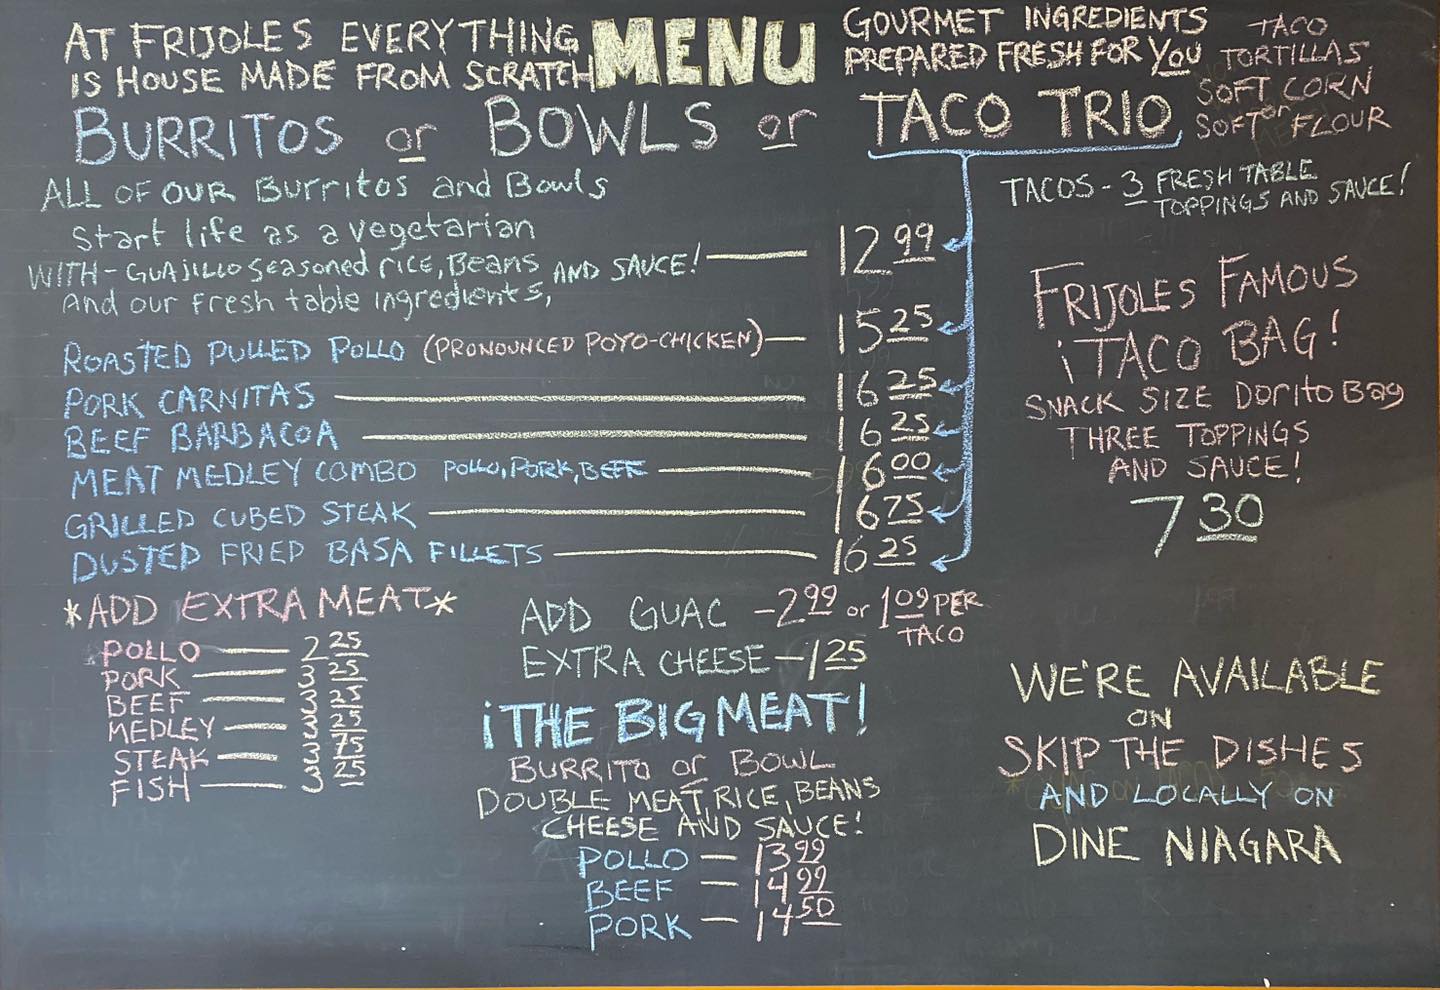 AT FRIJOLES EVERYTHING
IS HOUSE MADE FROM SCRATCH
MENU
GOURMET INGREDIENTS
PREPARED FRESH FOR YOU
TACO
TORTILLAS
SOFT CORN
or
SOFT FLOUR
BURRITOS or BOWLS or TACO TRIO
ALL OF OUR Burritos and Bowls
Start life as a vegetarian
WITH - GUAJILLO seasoned rice, Beans
And our fresh table ingredients,
AND SAUCE! 12 99
TACOS - 3 FRESH TABLE
TOPPINGS AND SAUCE!
ROASTED PULLED POLLO (PRONOUNCED POYO-CHICKEN) 15 25
PORK CARNITAS 16 25
BEEF BARBACOA 16 25
MEAT MEDLEY COMBO POLLO, PORK, BEEF 16 00
GRILLED CUBED STEAK 16 75
DUSTED FRIED BASA FILLETS 16 25
FRIJOLES FAMOUS
¡TACO BAG!
SNACK SIZE Dorito Bag
THREE TOPPINGS
AND SAUCE!
7 30
*ADD EXTRA MEAT*
POLLO 2 25
PORK 3 25
BEEF 3 25
MEDLEY 3 25
STEAK 3 75
FISH 3 25
ADD GUAC - 2 99 or 1 09 PER
TACO
EXTRA CHEESE - 1 25
¡THE BIG MEAT!
BURRITO or BOWL
DOUBLE MEAT, RICE, BEANS
CHEESE AND SAUCE!
POLLO - 13 99
BEEF - 14 99
PORK - 14 50
WE'RE AVAILABLE
ON
SKIP THE DISHES
AND LOCALLY ON
DINE NIAGARA